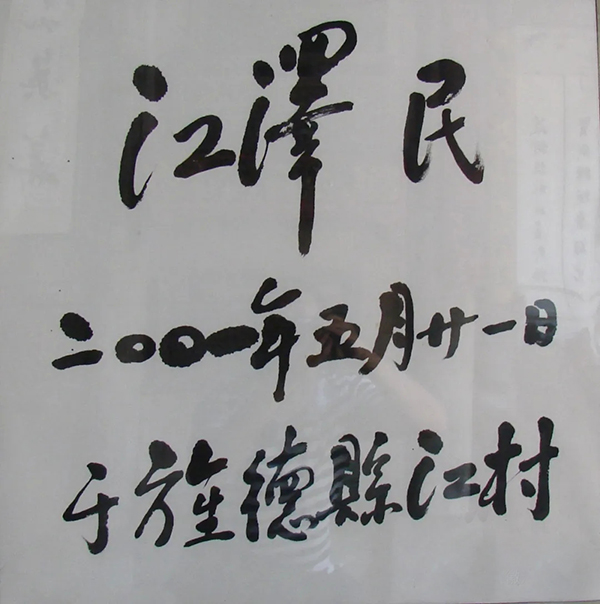 江澤民
二〇〇一年五月廿一日
于旌德縣江村